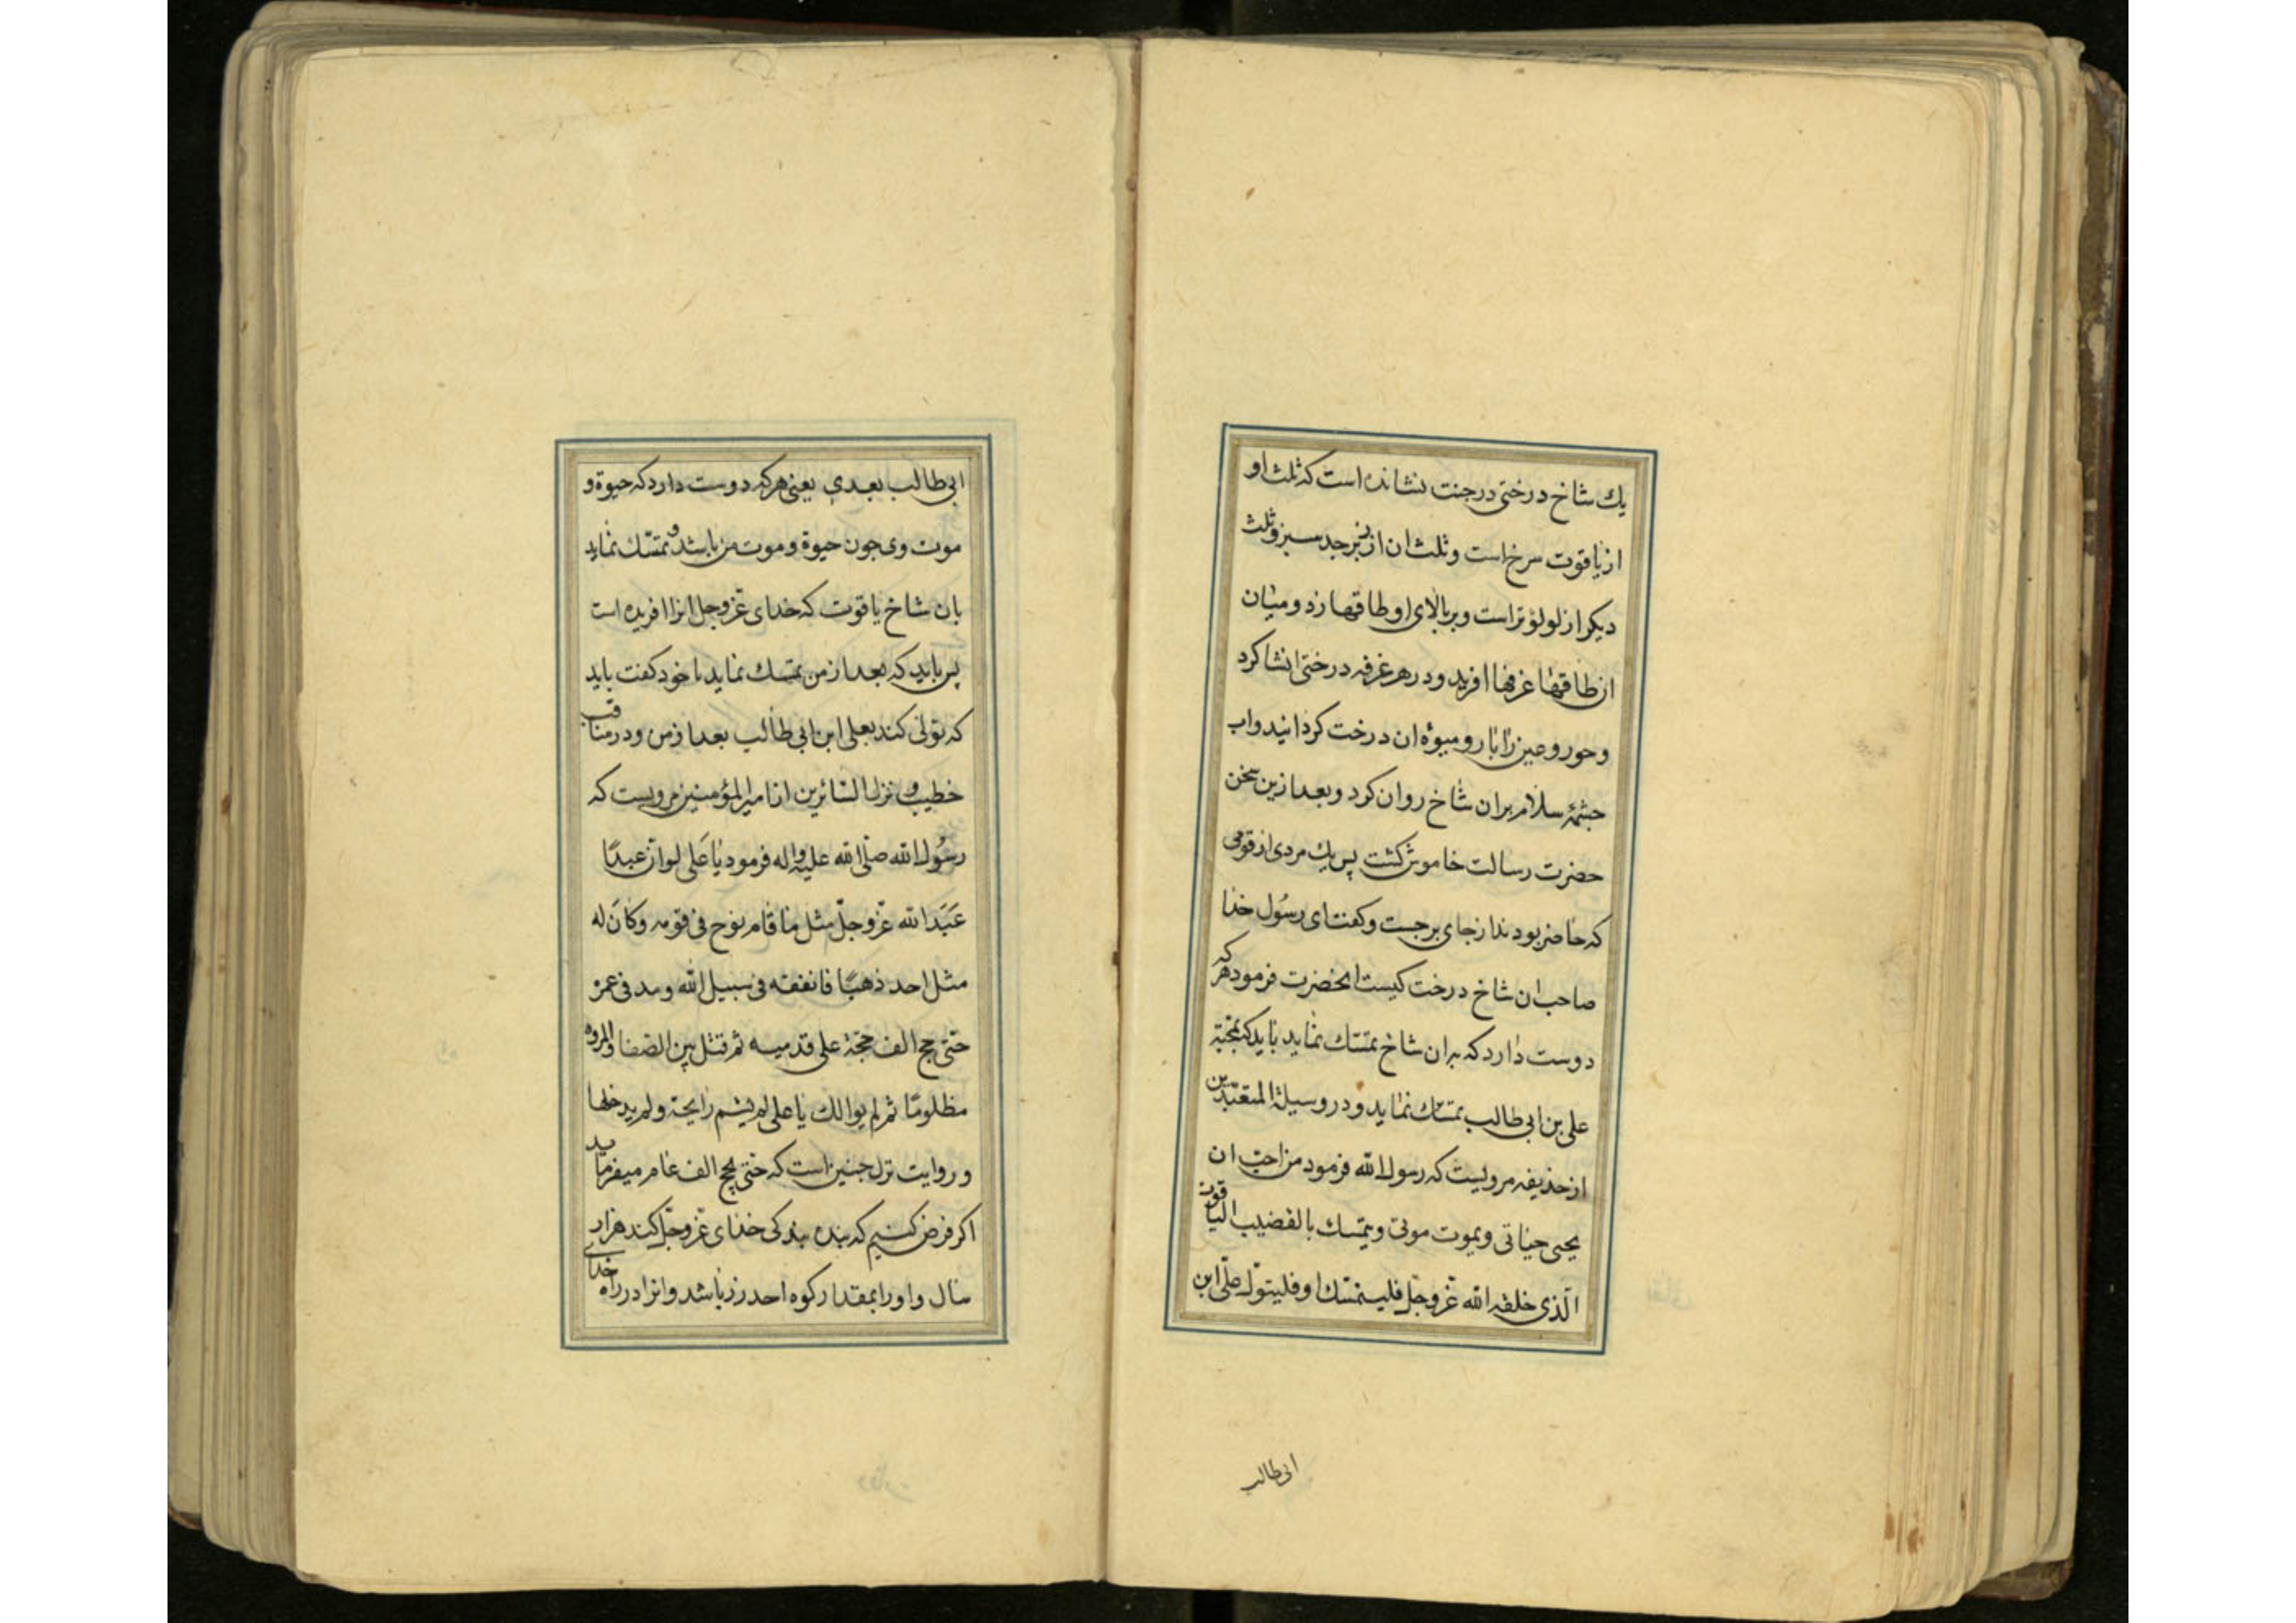 یك شاخ درختی در جنت نشانده است که ثلث او
از یاقوت سرخ است و ثلث ان از زبرجد سبز و ثلث
دیکر از لولؤ تر است و بر بالای او طاقها زد و میان
ان طاقها غرفها افرید و در هر غرفه درختی انشا کرد
و حور و عین را بار و میوۀ ان درخت کردانید و اب
چشمۀ سلام بر ان شاخ روان کرد و بعد از ین سخن
حضرت رسالت خاموش کشت پس یك مردی از قومی
که حاضر بودند از جای برجست و کفت ای رسُول خدا
صاحب ان شاخ درخت کیست انحضرت فرمود هر که
دوست دارد که بر ان شاخ تمسّك نماید باید که بمحبّة
علی بن ابی طالب تمسّك نماید و در وسیلة المتعبّدین
از حذیفه مرویست که رسول الله فرمود من احبّ ان
یحیی حیاتی و یموت موتی و یتمسك بالقضیب الیاقوت
الّذی خلقه الله عّز و جلّ فلیتمسّك او فلیتولّ علّی ابن
ابی طالب
ابی طالب بعدی یعنی هر که دوست دارد که حیوة و
موت وی جون حیوة و موت من باشد و تمسّك نماید
بان شاخ یاقوت که خدای عّز و جل انرا افریده است
پس باید که بعد از من تمسك نماید یا خود کفت باید
که تولّی کند بعلی ابن ابی طالب بعد از من و در مناقب
خطیب و نزل السّائرین از امیر المؤمنین مرویست که
رسُول الله صلّی الله علیه و اله فرمود یا علی لو انّ عبدًا
عَبَد الله عّز و جلّ مثل ما قام نوح فی قومه و کانَ له
مثل احد ذهبًا فانفقه فی سبیل الله و مد فی عمره
حتّی حج الف حجّة علی قدمیه ثم قتل بین الصّفا و المروه
مظلومًا ثم لم یوالك یا علی لم یشم رایحة و لم یدخلها
و روایت نزل جنین است که حتّی یحج الف عام میفرماید
اکر فرض کنیم که بنده بندکی خدای عّز و جلّ کند هزار
سال و او را بمقدار کوه احد زر باشد و انرا در راه خدای